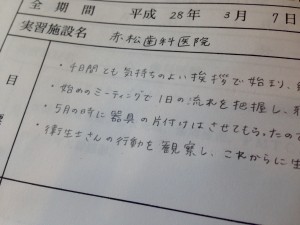 全期間 平成 28年 3月 7日
実習施設名 赤松歯科医院
目
・4日間とも気持ちのよい挨拶で始まり、
・始めのミーティングで1日の流れを把握し、
・5月の時に器具の片付けはさせてもらったので
・衛生士さんの行動を観察し、これからに生